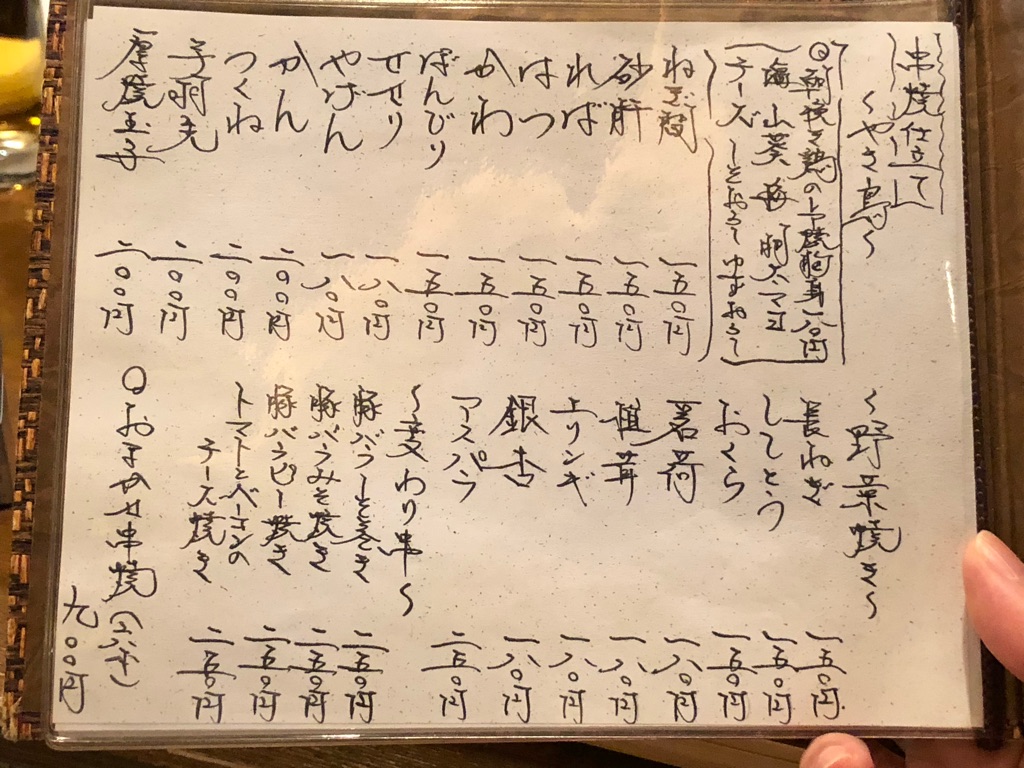 串焼仕立て
～やき鳥～
◎朝挽き鶏のレア焼胸身一八〇円
梅 山葵 明太マヨ
チーズ しそおろし ゆずおろし
ねぎ間 一五〇円
砂肝 一五〇円
ればー 一五〇円
はつ 一五〇円
かわ 一五〇円
ぼんじり 一五〇円
せせり 一八〇円
やげん 一八〇円
かん 二〇〇円
つくね 二〇〇円
手羽先 二〇〇円
厚焼玉子 二〇〇円
～野菜焼き～
長ねぎ 一五〇円
ししとう 一五〇円
おくら 一五〇円
茗荷 一八〇円
椎茸 一八〇円
エリンギ 一八〇円
銀杏 一八〇円
アスパラ 二五〇円
～変わり串～
豚バラしそ巻き 二五〇円
豚バラみそ焼き 二五〇円
豚バラピー巻き 二五〇円
トマトとベーコンの
チーズ焼き 二五〇円
◎おまかせ串焼(五本)
九〇〇円